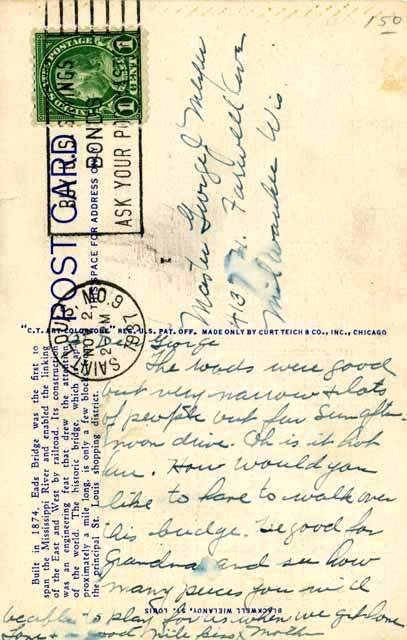 150
U.S. POSTAGE
1 CENT 1
BUY U.S. SAVINGS
BONDS
ASK YOUR PO
POST CARD
THIS SPACE FOR ADDRESS ONLY
SAINT LOUIS, MO. 9
NOV 2
2 PM
1937
Master George J.
N. Farwell Ave
Milwaukee Wis
"C.T. ART-COLORTONE" REG. U.S. PAT. OFF. MADE ONLY BY CURT TEICH & CO., INC., CHICAGO
Built in 1874, Eads Bridge was the first to
span the Mississippi River and enabled the linking
of the East and West by railroad. Its construction
was an engineering feat that drew the attention
of the world. The historic bridge, which is ap-
proximately a mile long, is only a few blocks
the principal St. Louis shopping district.
Dear George
The roads were good
but very narrow & lots
of people out for Sun. after-
noon drive. Oh is it hot
here. How would you
like to have to walk over
this bridge. Be good for
Grandma and see how
many pieces you will
be able to play for us when we get home
Love & good mile kiss Moth
BLACKWELL WIELANDY, ST. LOUIS